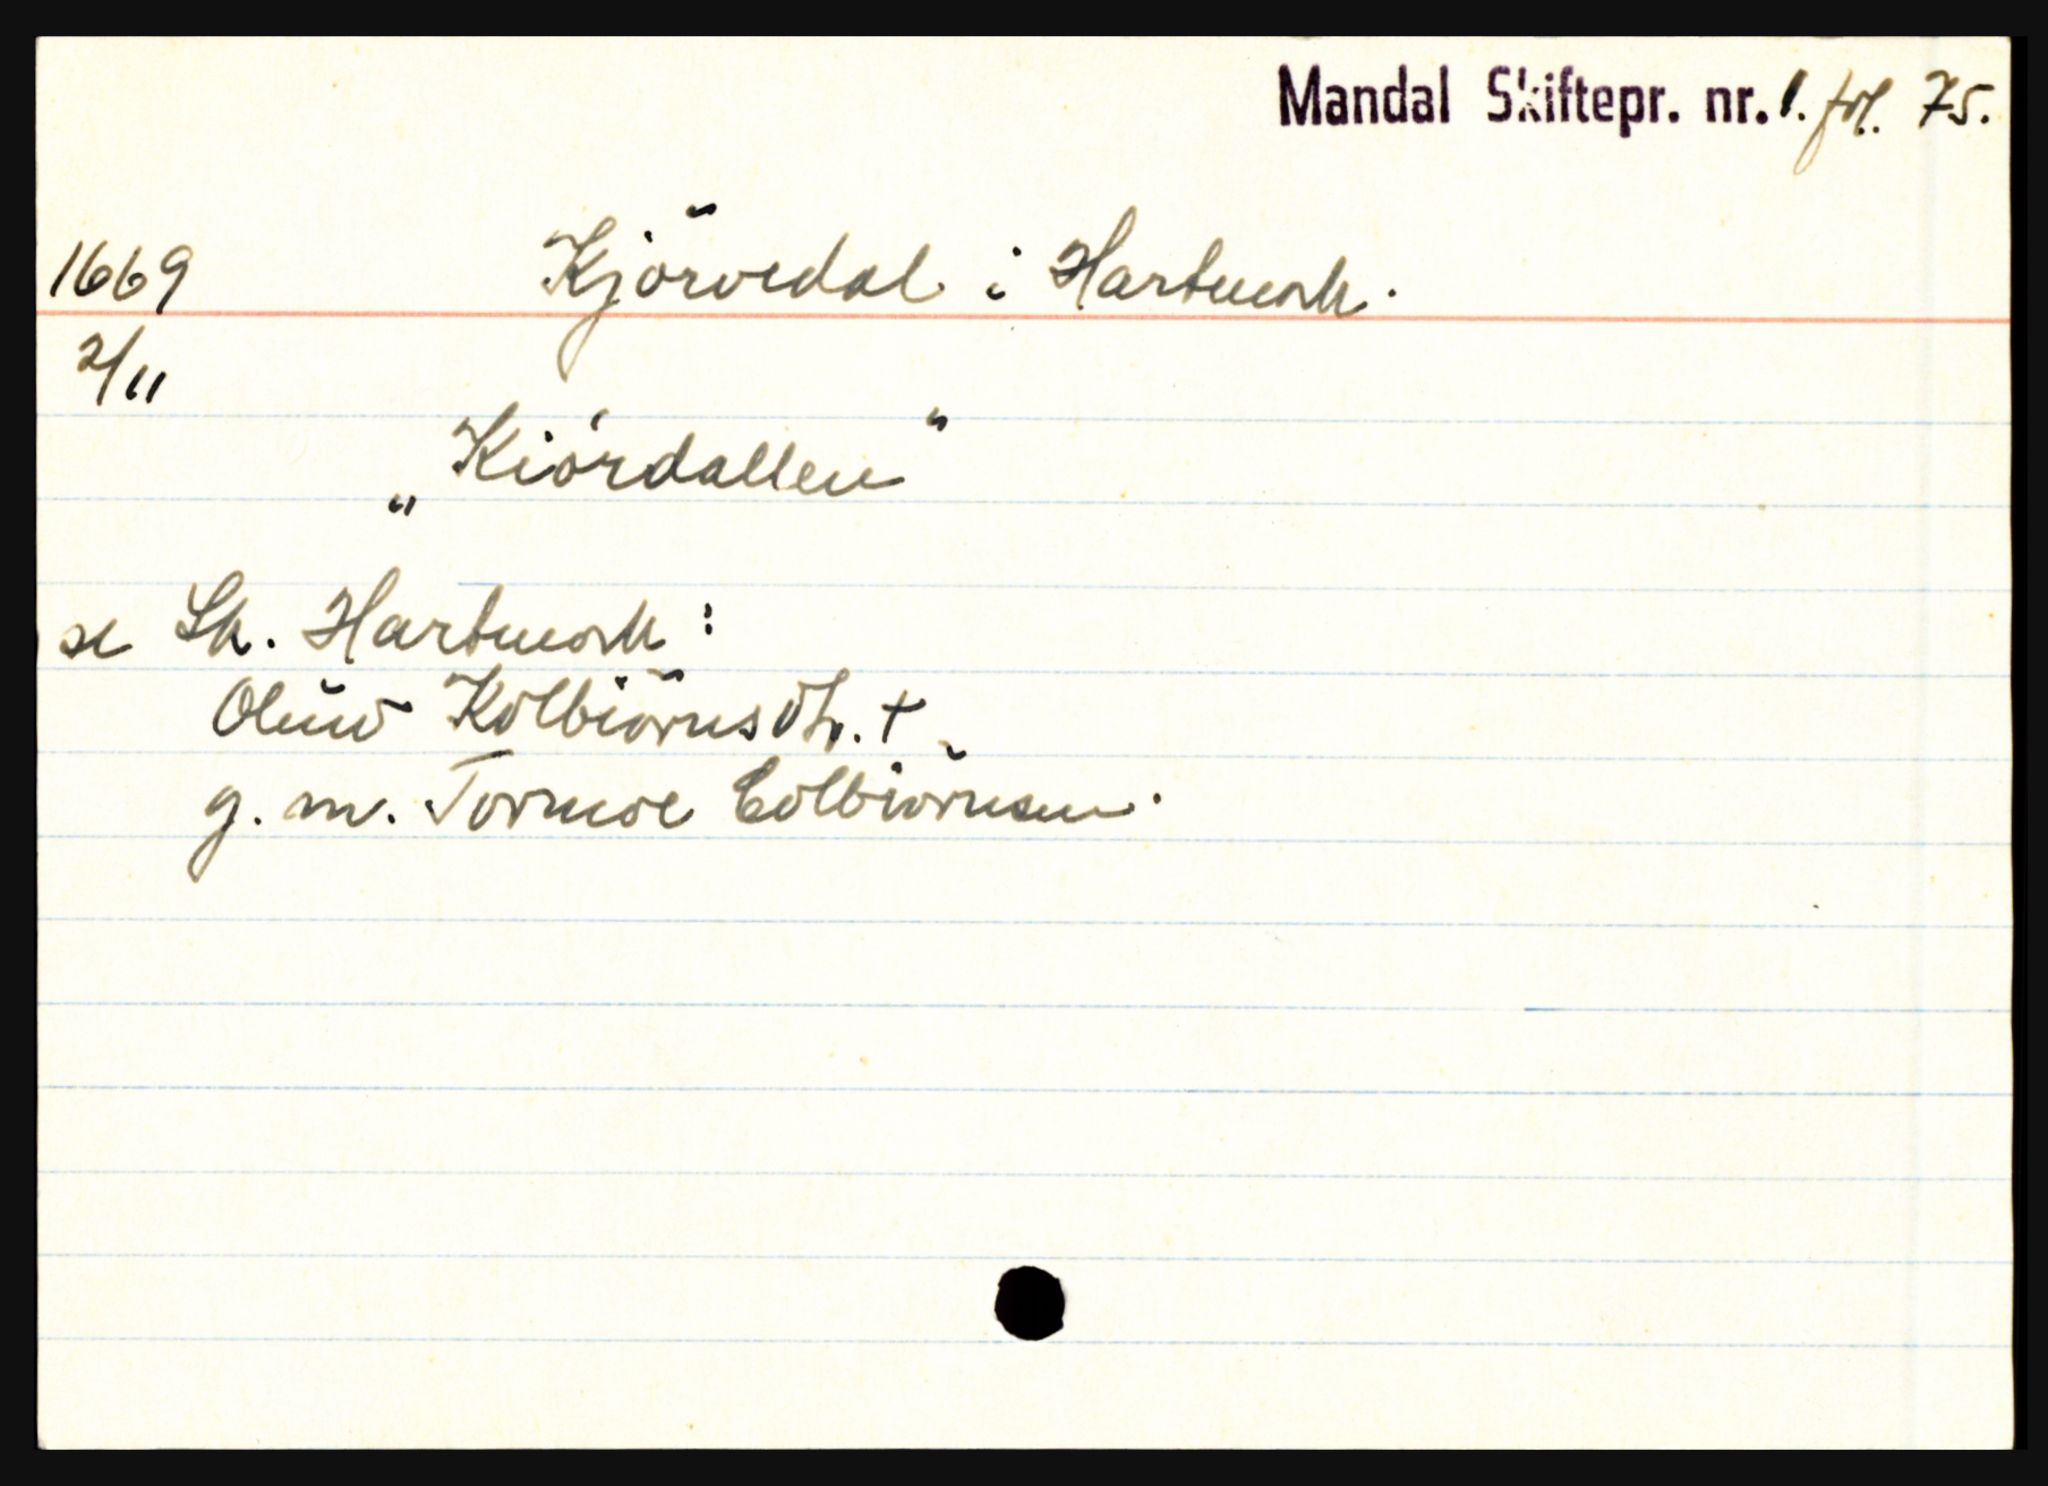 Mandal Skiftepr. nr. 1. fol. 75.
1669 Kjörvedal i Hartmark.
2/11
„Kiórdallen"
se Sk. Hartmark:
Oluw Kolbiörnsdtr. +
g. m. Tormoe Colbiörnsen.